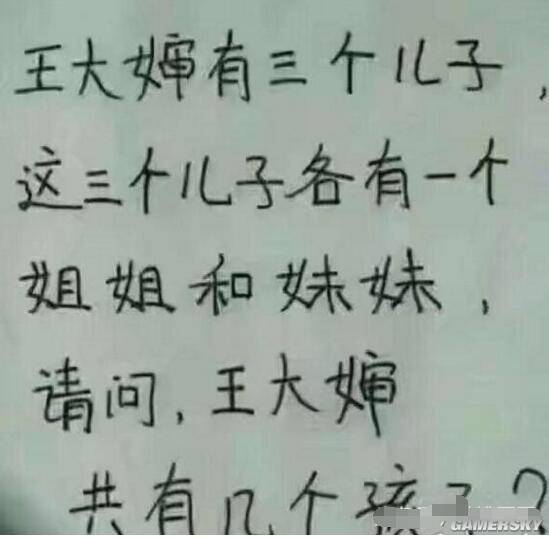 王大婶有三个儿子，
这三个儿子各有一个
姐姐和妹妹，
请问，王大婶
共有几个孩子？
GAMERSKY